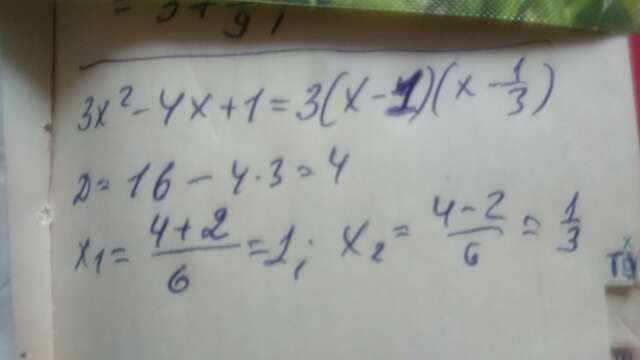 = 3 + 9,
3x² - 4x + 1 = 3(x - 1)(x - 1/3)
D = 16 - 4·3 = 4
x₁ = (4+2)/6 = 1; x₂ = (4-2)/6 = 1/3